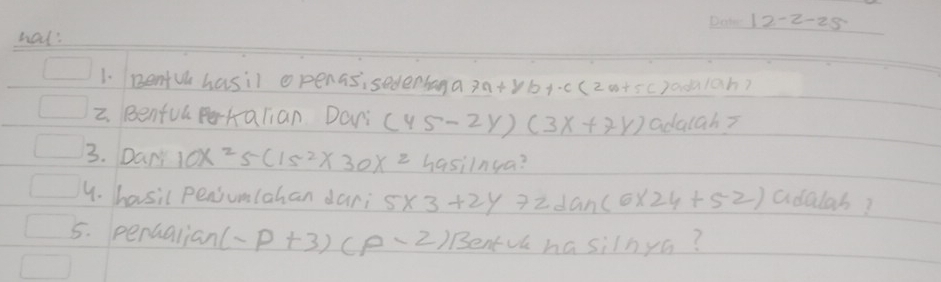 Date: 12-2-25
hal:
1. Bentuk hasil operasi sederhana 7a+8b+-c(2a+5c) adalah?
2. Bentuk Perkalian Dari (45-2y)(3x+7y) adalah?
3. Dari 10x²5(15²x30x² hasilnya?
4. hasil penjumlahan dari 5x3+2y 7z dan (6x24+5z) adalah?
5. perkalian(-p+3)(p-2) Bentuk hasilnya?